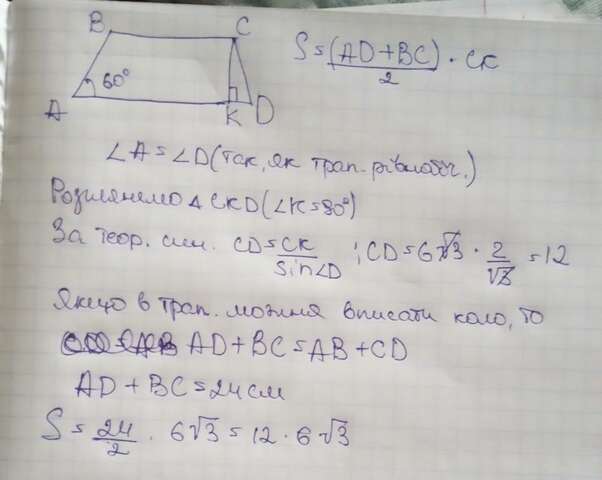 B C
60°
A K D
S = (AD + BC)/2 · CK
∠A = ∠D (так, як трап. рівнобіч.)
Розглянемо △ CKD (∠K = 90°)
За теор. син. CD = CK/sin∠D ; CD = 6√3 · 2/√3 = 12
Якщо в трап. можна вписати коло, то
AD + BC = AB + CD
AD + BC = 24 см
S = 24/2 · 6√3 = 12 · 6√3